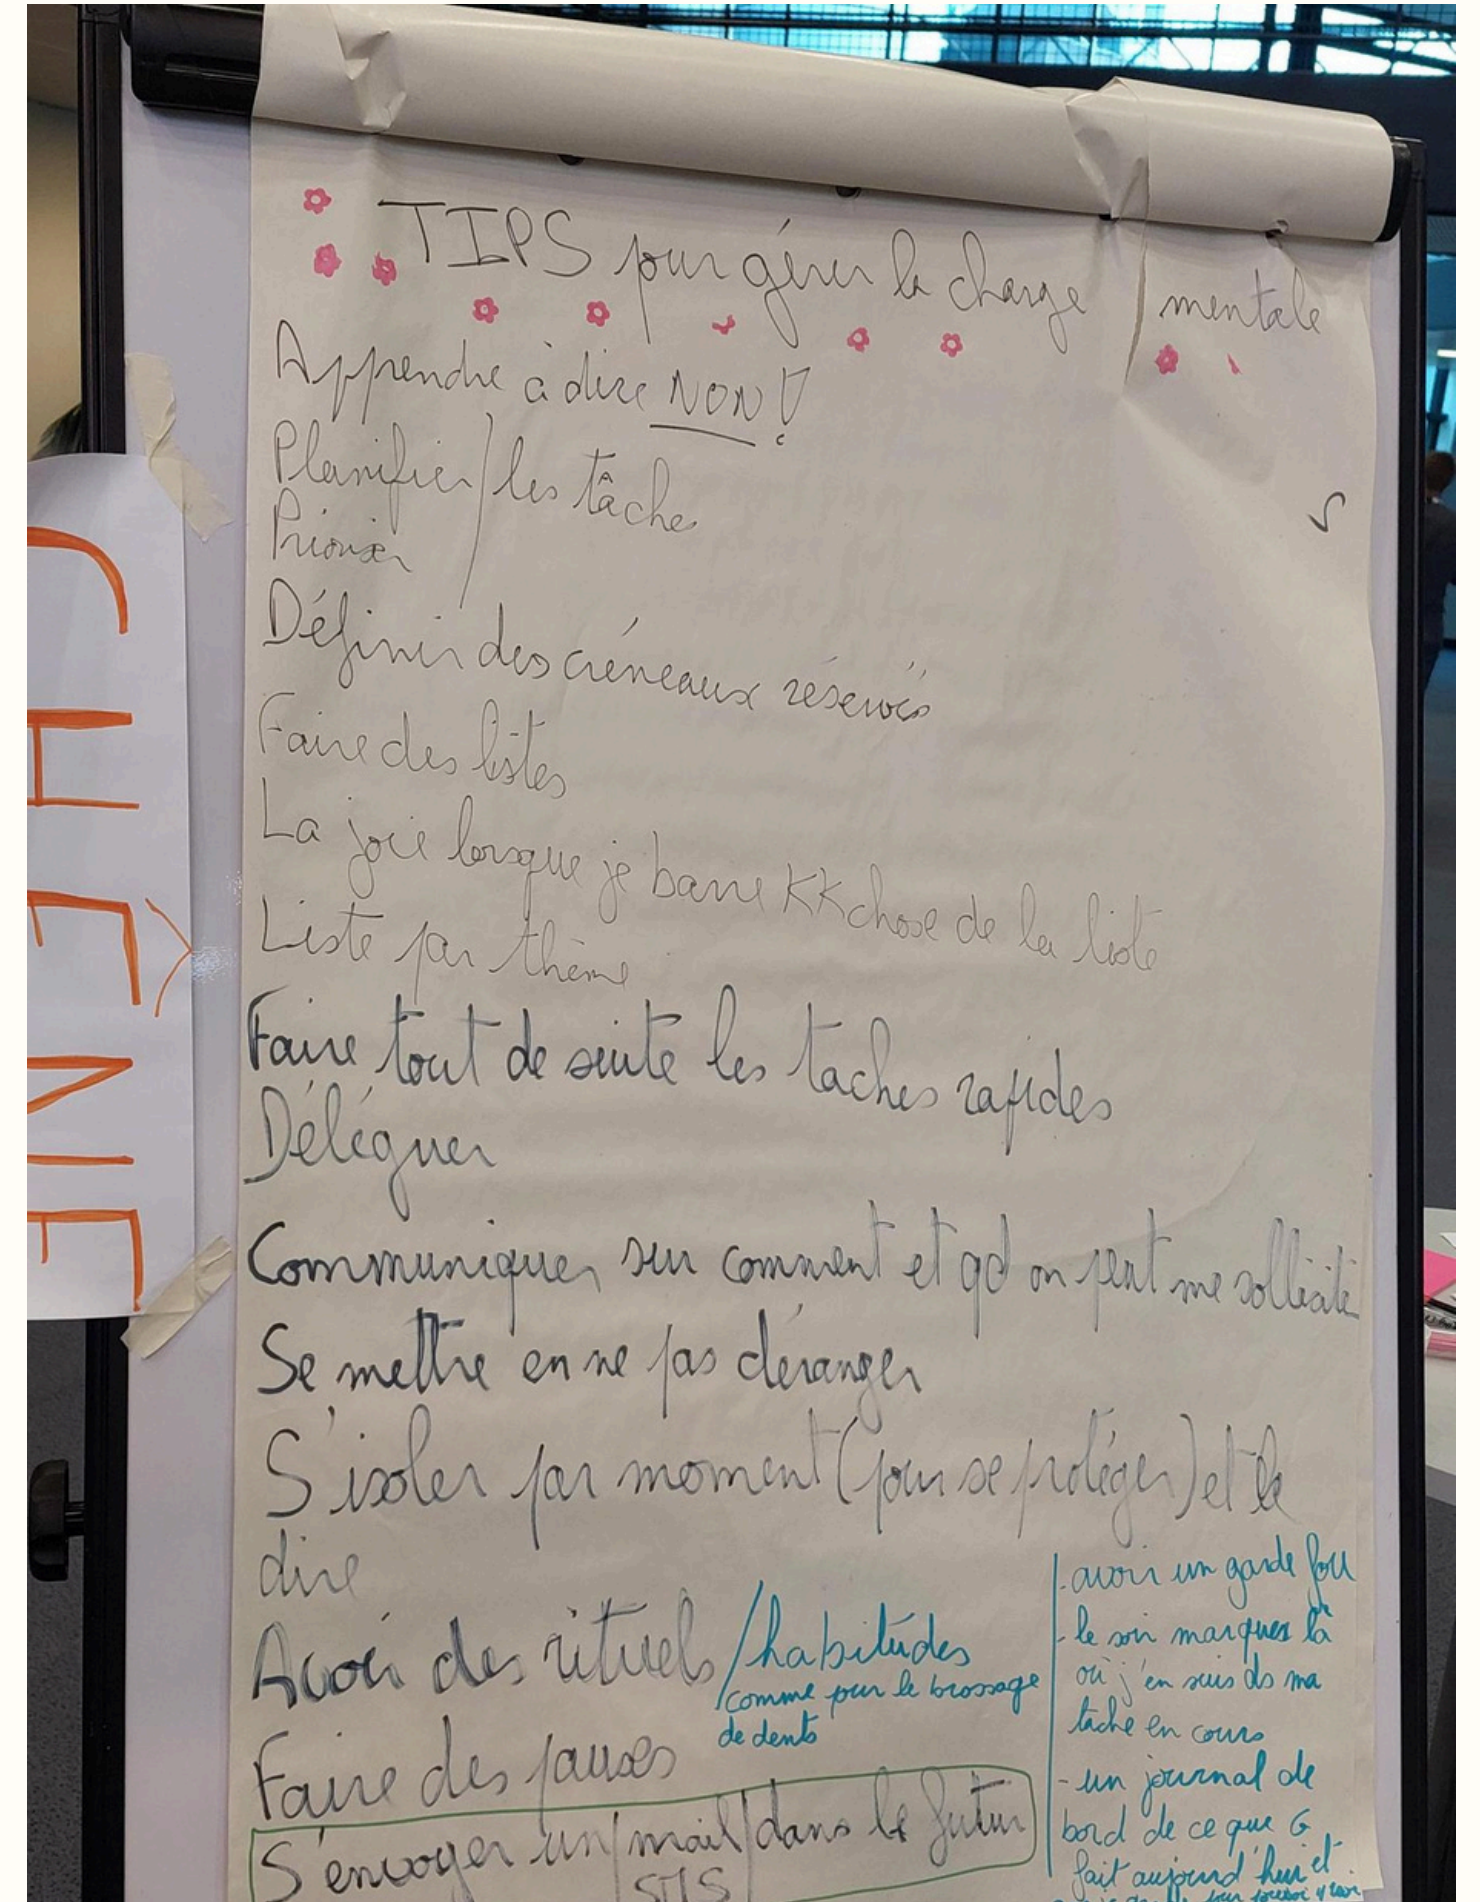 CHÊNE
TIPS pour gérer la charge mentale
Apprendre à dire NON !
Planifier / les tâches
Prioriser
Définir des créneaux réservés
Faire des listes
La joie lorsque je barre KKchose de la liste
Liste par thème
Faire tout de suite les taches rapides
Déléguer
Communiquer sur comment et qd on peut me solliciter
Se mettre en ne pas déranger
S'isoler par moment (pour se protéger) et le
dire
Avoir des rituels / habitudes
comme pour le brossage
de dents
Faire des pauses
S'envoyer un / mail / dans le futur
SMS
- avoir un garde fou
- le soir marquer là
où j'en suis ds ma
tache en cours
- un journal de
bord de ce que G
fait aujourd'hui et